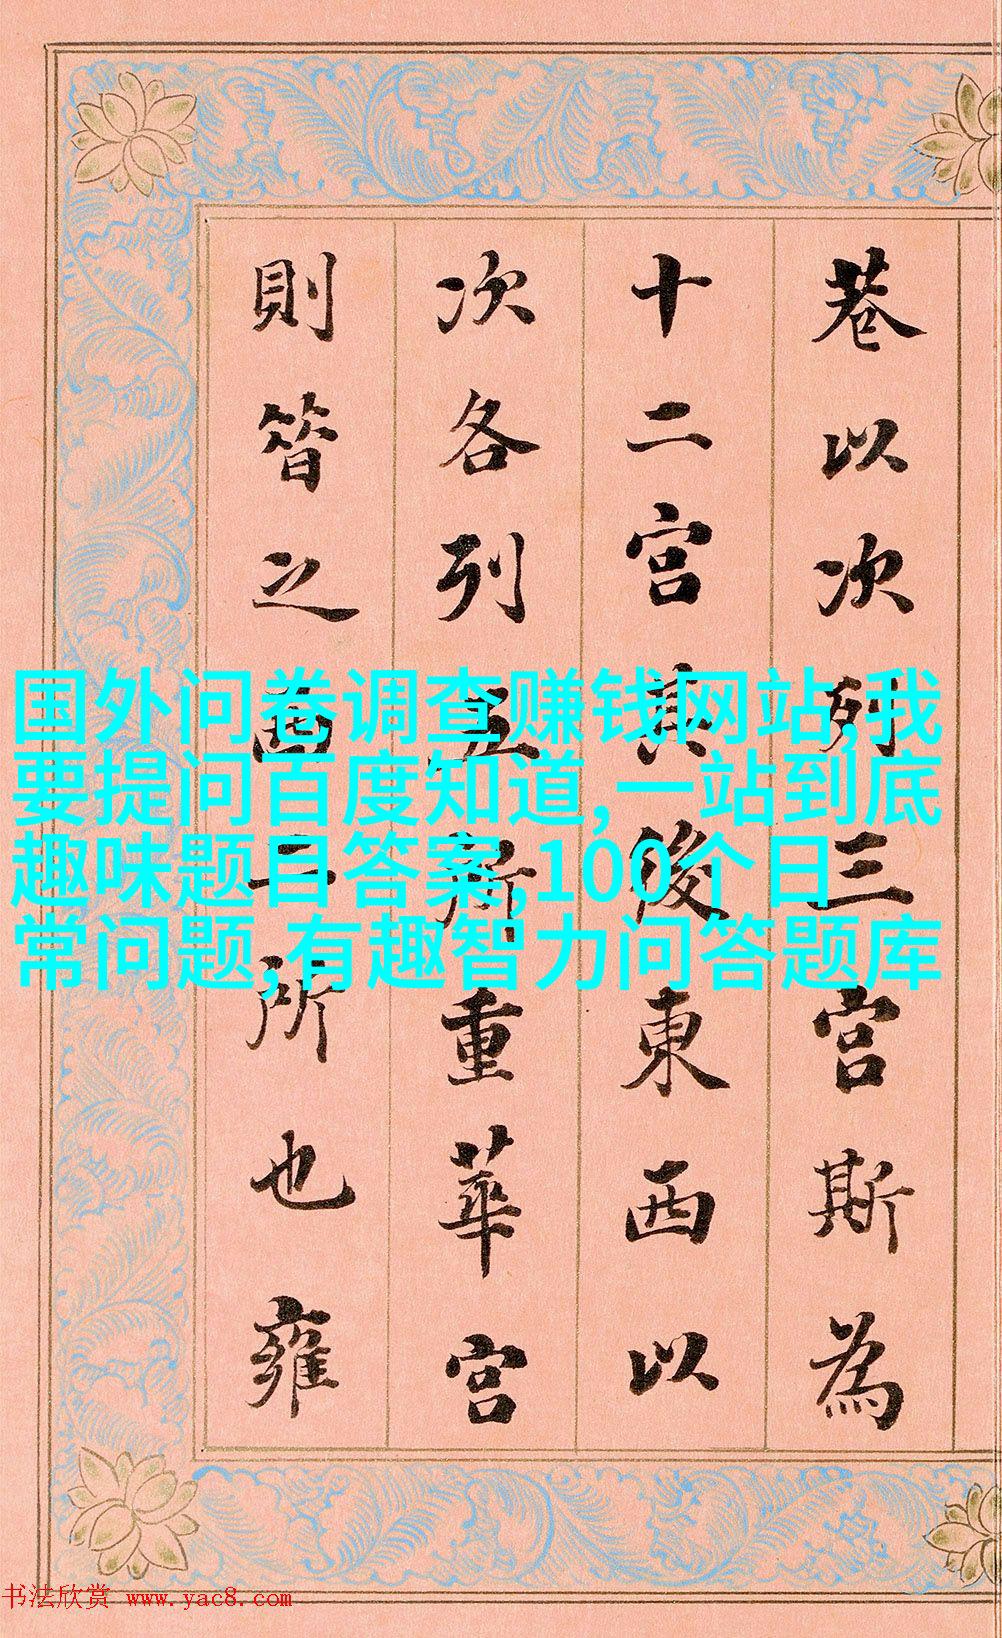 巷以次列三宮斯為
十二宮其後東西以
次各列五所重華宮
則㫺之西二所也雍
国外问卷调查赚钱网站,我
要提问百度知道,一站到底
趣味题目答案,100个日
常问题,有趣智力问答题库
书法欣赏 www.yac8.com